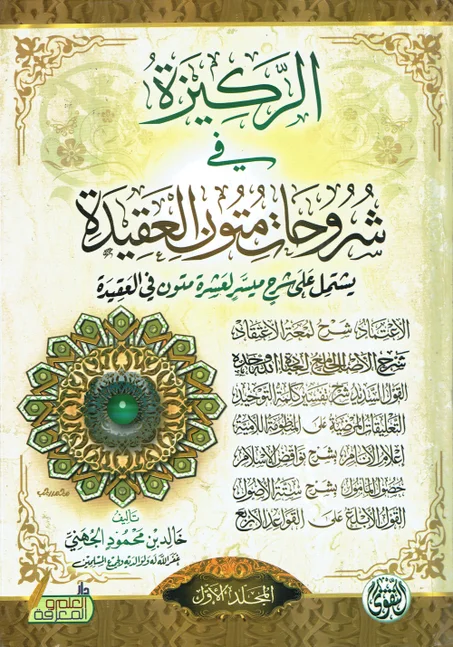 الرَّكِيزَةُ
فِي
شُرُوحَاتِ مُتُونِ العَقِيدَةِ
يشتمل على شرح ميسر لعشرة متون في العقيدة
الاعتماد، شرح لمعة الاعتقاد
شرح الأصل الجامع لعبادة الله وحده
القول السديد شرح تفسير كلمة التوحيد
التعليقات المرضية على المنظومة اللامية
إعلام الأنام بشرح نواقض الإسلام
حصول المأمول بشرح ستة الأصول
القول الأبلغ على القواعد الأربع
تأليف
خالد بن محمود الجهني
غفر الله له ولوالديه ولجميع المسلمين
المجلد الأول
دار
العلم و
المعرفة
التقوى